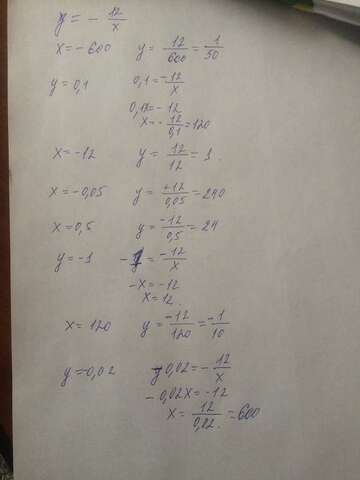 y = - 12/x
x = -600 y = 12/600 = 1/50
y = 0,1 0,1 = -12/x
0,1x = -12
x = - 12/0,1 = 120
x = -12 y = 12/12 = 1.
x = -0,05 y = +12/0,05 = 240
x = 0,5 y = -12/0,5 = 24
y = -1 -1 = -12/x
-x = -12
x = 12.
x = 120 y = -12/120 = -1/10
y = -0,02 -0,02 = - 12/x
- 0,02x = -12
x = 12/0,02. = 600